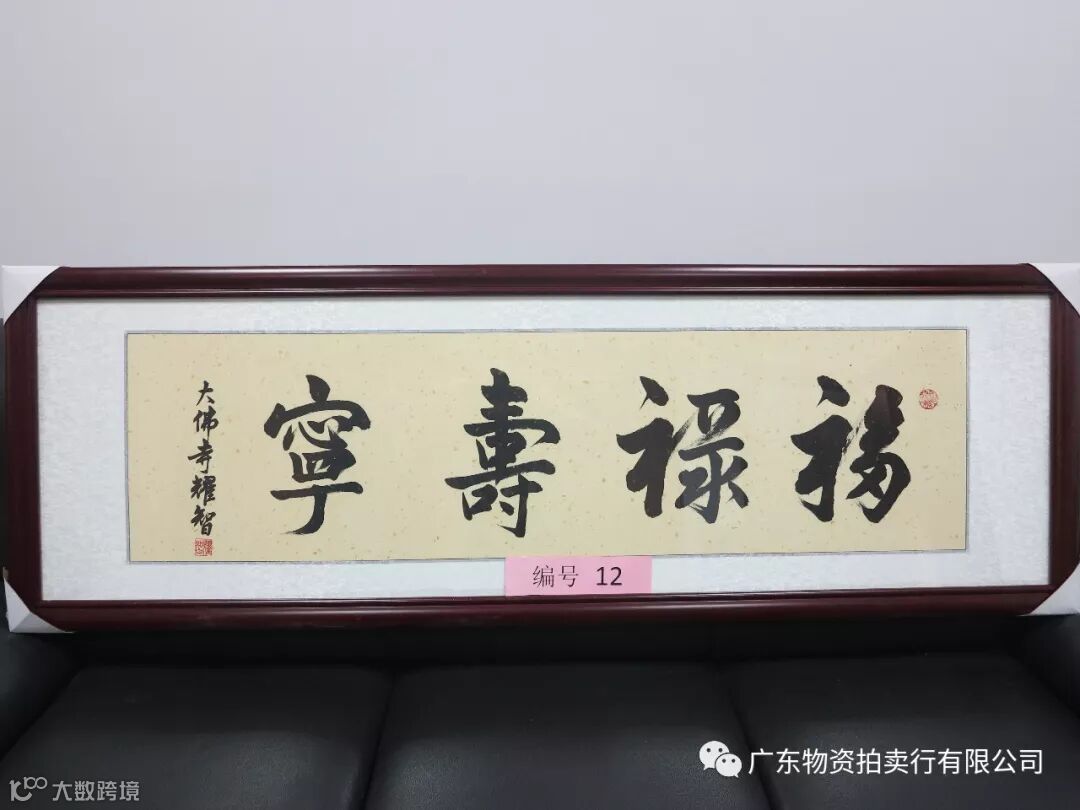 福祿壽寧
大佛寺耀智
编号 12
广东物资拍卖行有限公司
大数跨境